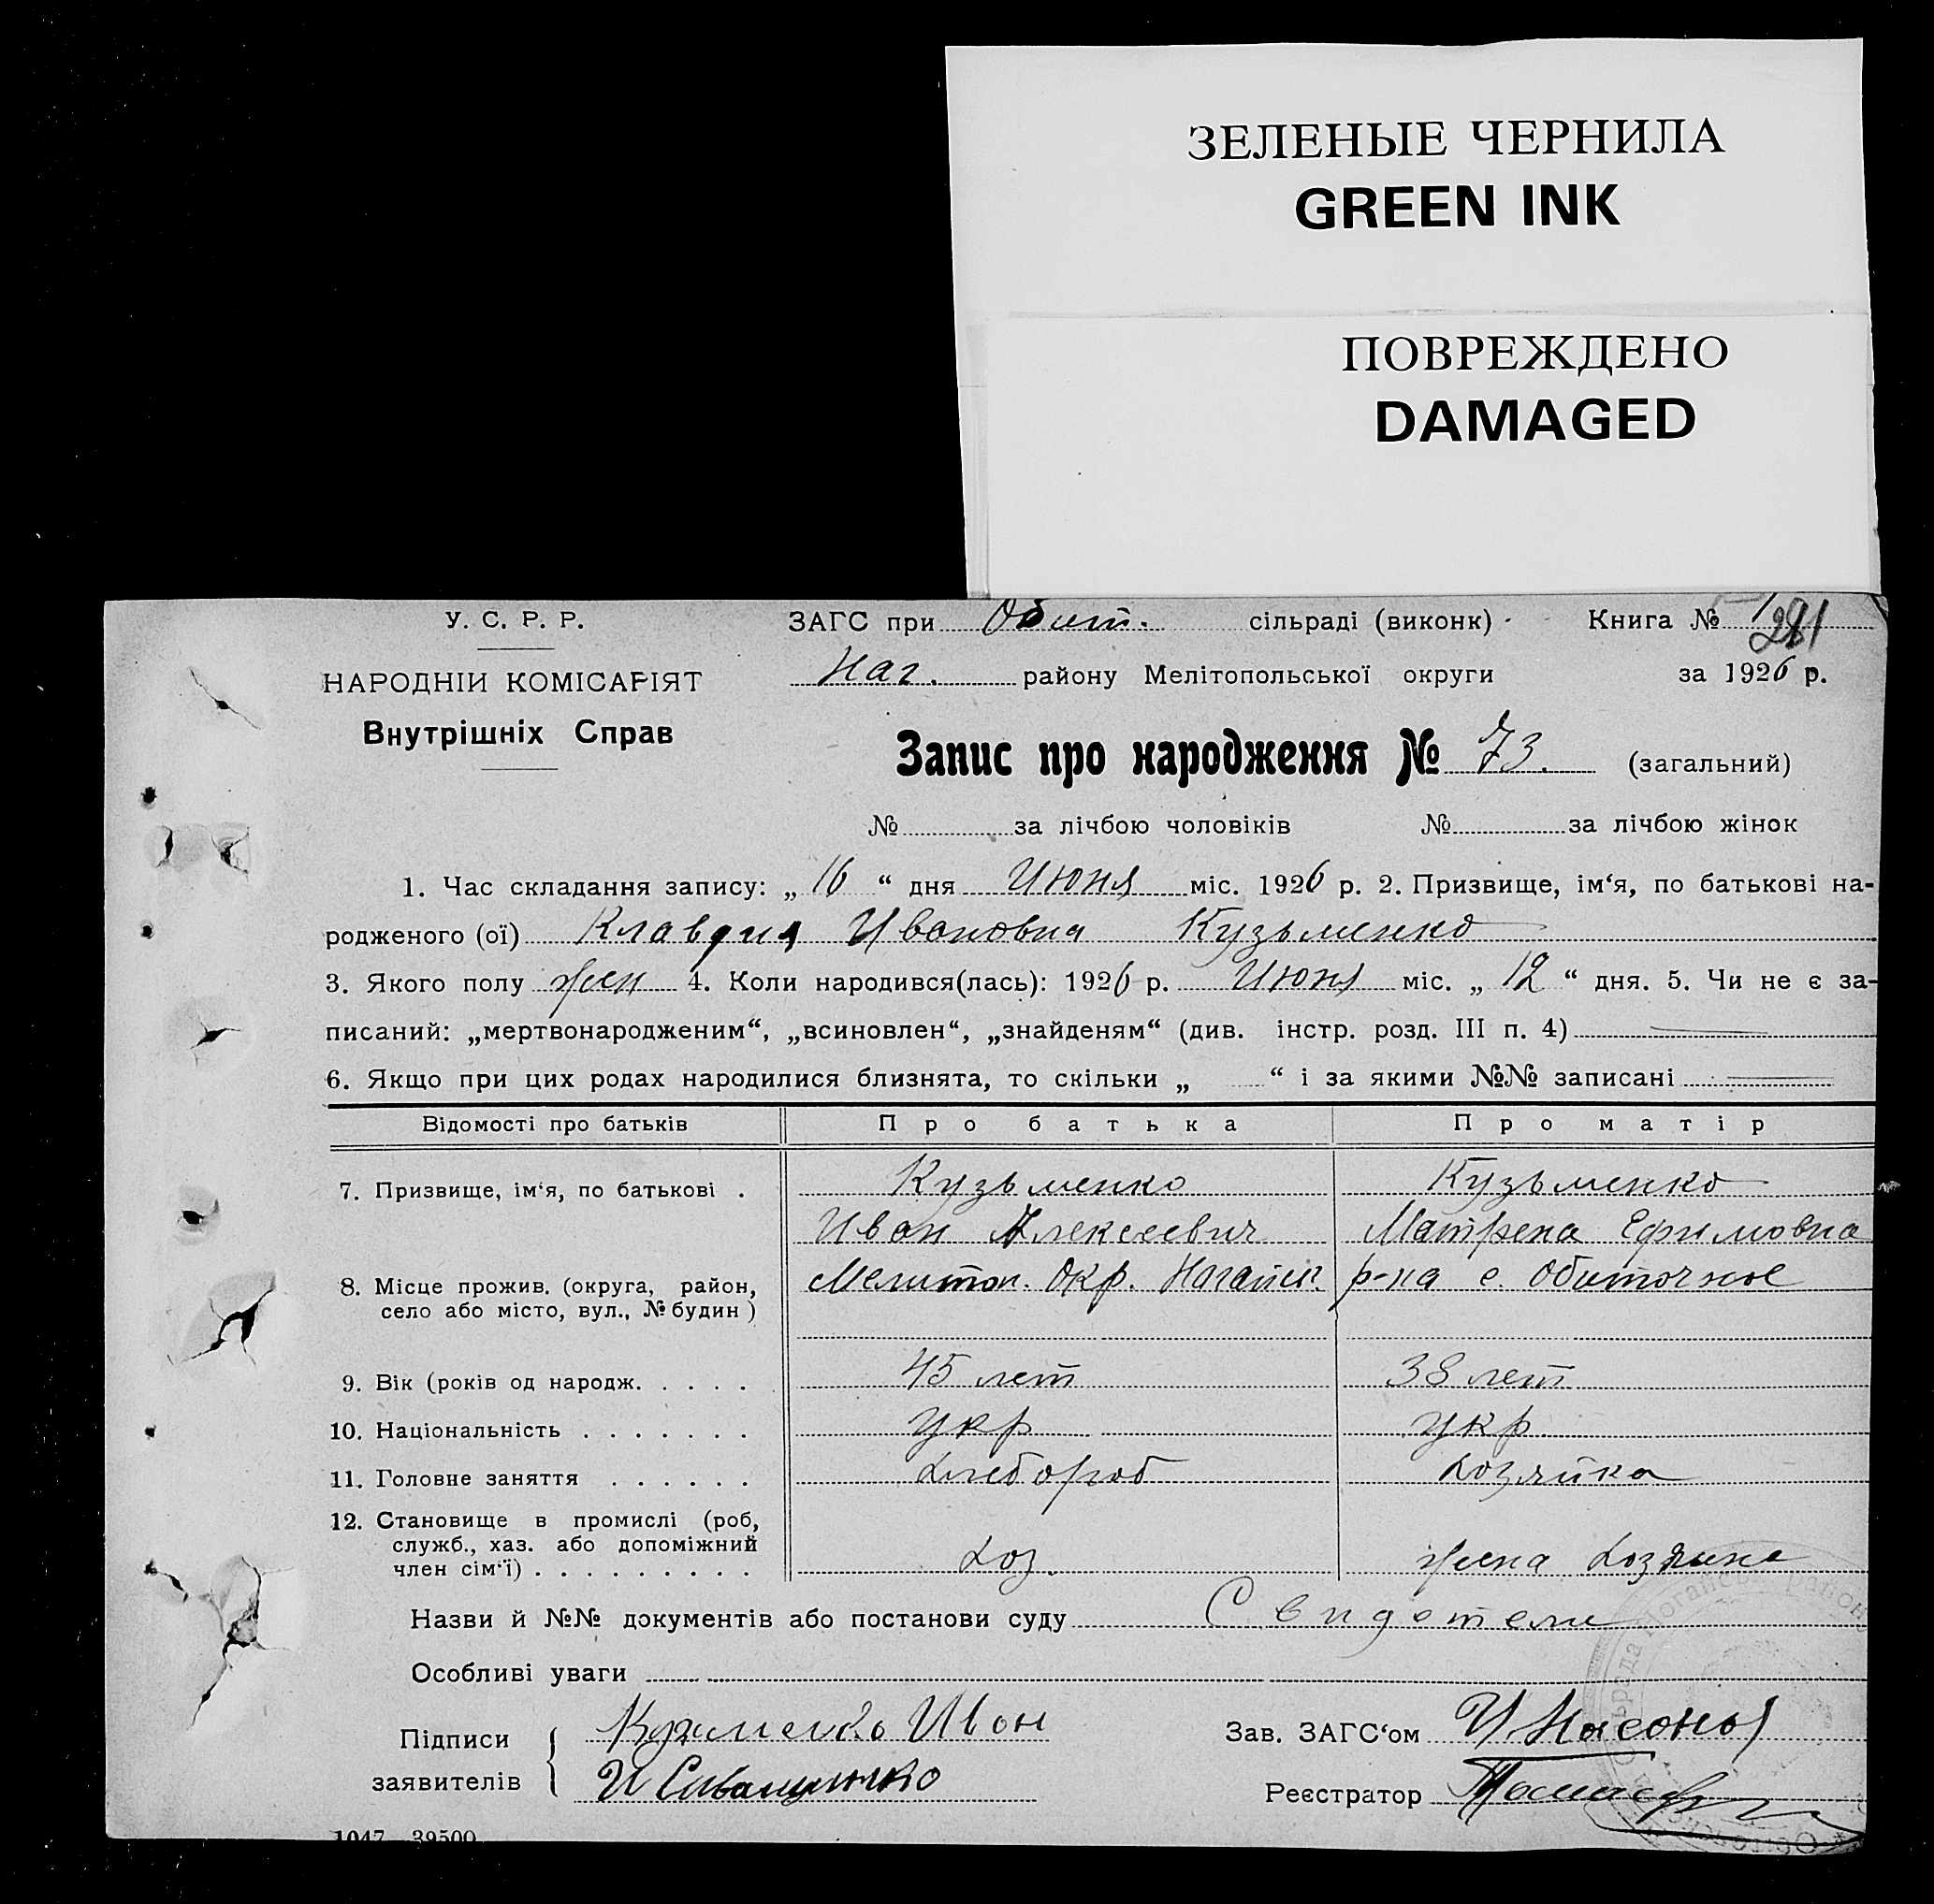 ЗЕЛЕНЫЕ ЧЕРНИЛА
GREEN INK
ПОВРЕЖДЕНО
DAMAGED
У. С. Р. Р.
НАРОДНІЙ КОМІСАРІЯТ
Внутрішніх Справ
ЗАГС при Обит. сільраді (виконк)
Книга № 281
Наг. району Мелітопольської округи за 1926 р.
Запис про народження № 73. (загальний)
№ за лічбою чоловіків № за лічбою жінок
1. Час складання запису: „16“ дня Июня міс. 1926 р. 2. Призвище, ім‘я, по батькові на-
родженого (ої) Клавдия Ивановна Кузьменко
3. Якого полу жен 4. Коли народився(лась): 1926 р. Июня міс. „12“ дня. 5. Чи не є за-
писаний: „мертвонародженим“, „всиновлен“, „знайденям“ (див. інстр. розд. III п. 4)
6. Якщо при цих родах народилися близнята, то скільки „ “ і за якими №№ записані
Відомості про батьків Про батька Про матір
7. Призвище, ім‘я, по батькові . Кузьменко Кузьменко
Иван Алексеевич Матрена Ефимовна
8. Місце прожив. (округа, район, Мелитоп. Окр. Нагайск. р-на с. Обиточное
село або місто, вул., № будин)
9. Вік (років од народж. . . . . 45 лет 38 лет
10. Національність . . . . . . . укр укр
11. Головне заняття . . . . . . Хлебороб хозяйка
12. Становище в промислі (роб,
служб., хаз. або допоміжний
член сім‘ї) . . . . . . . . . Хоз. жена хозяина
Назви й №№ документів або постанови суду Свидетели
Особливі уваги
Підписи Кузменко Иван Зав. ЗАГС‘ом
заявителів Реєстратор
1047 39500